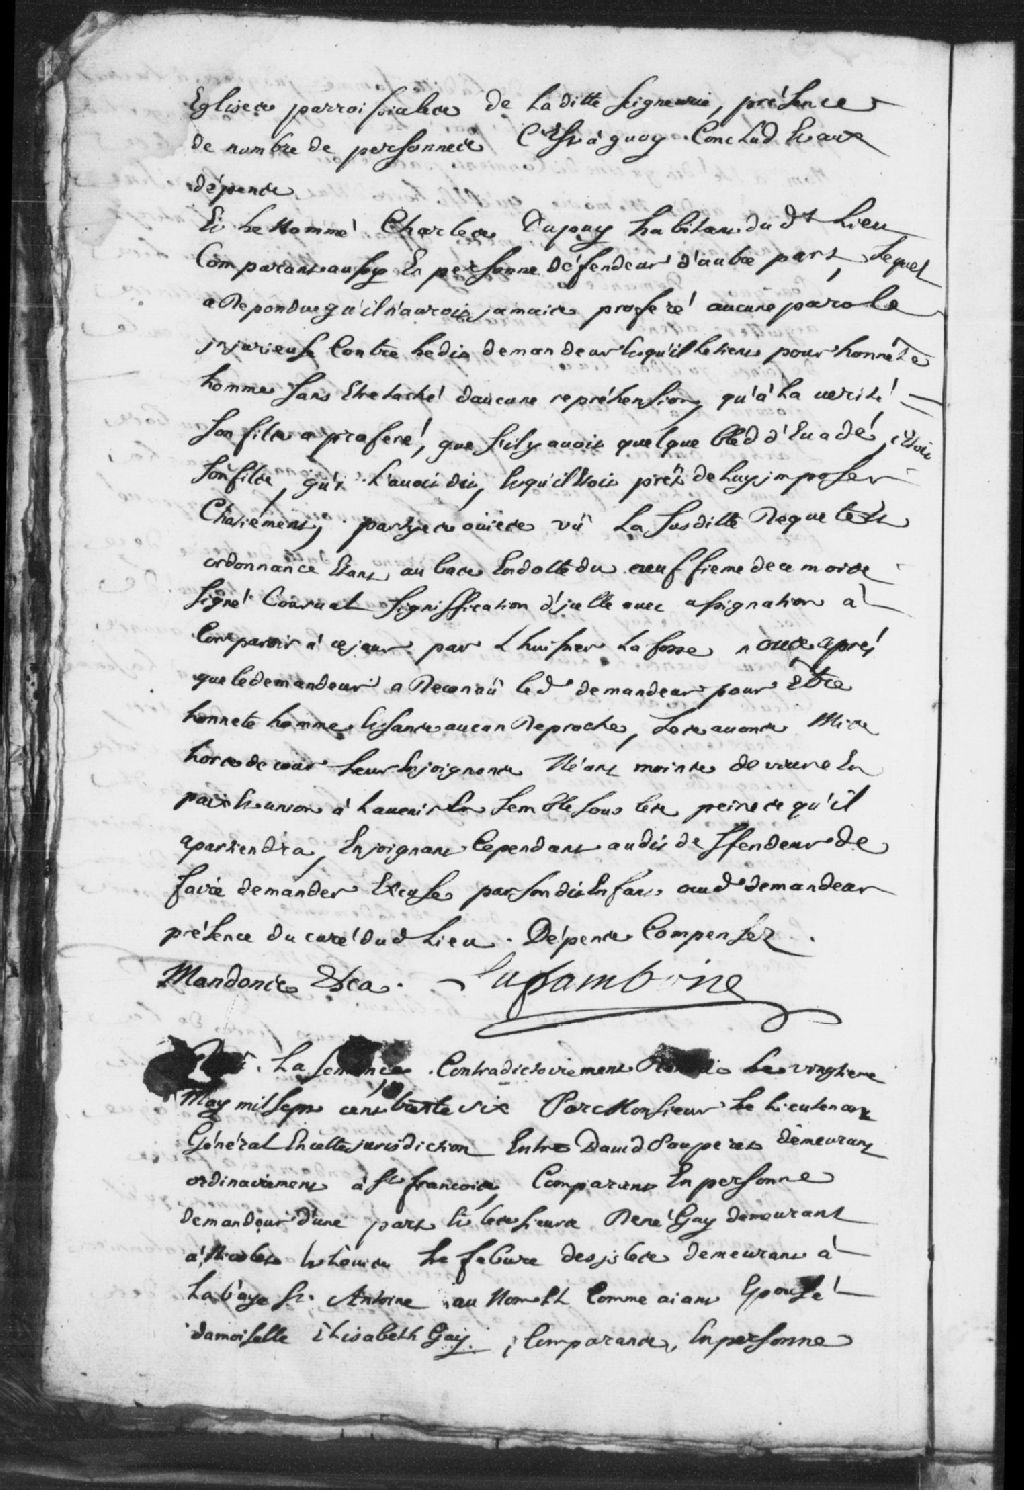 Eglises parroissiales de Laditte seigneurie, présence
de nombre de personnes C'est à quoy Conclud Et aux
dépens
Et Le Nommé Charles Dupuy habitans du dt Lieu
Comparans aussy En personne défendeur d'autre part, Lequel
a Repondu qu'il n'auroit jamais proferé aucune parole
injurieuse Contre Ledit demandeur Lequ'il tiens pour honnête
homme sans Etre taché d'aucune repréhension, qu'à La verité
son fils a proferé, que s'il y avoit quelque bled d'Evadé, c'Etoit
son fils, qui L'avoit dit, Lequ'il Etoit prêt de Luy imposer
Chatiement, partyes ouiees vû La susditte Requete Et
ordonnance Etans au bas En datte du neuffieme de ce mois
signé Courval signiffication d'jcelle avec assignation à
Comparoir à ce jour par L'huissier Lafosse nous après
que le demandeur a Reconnû led demandeur pour être
honnete homme Et sans aucun Reproche, Les avons Mis
hors de cour Leur Enjoignons Néant moins de vivre En
paix Et union à L'avenir En semble sous les peines qu'il
apartiendra, Enjoignant Cependans audit deffendeur de
faire demander Excuse par son dit Enfans aud demandeur
présence du curé dud Lieu. Dépens Compensez.
Mandons &ca.
La sentence Contradictoirement Rendue Le vingtiere
May mil sept cens trente six Par Monsieur Le Lieutenant
Général En cette jurisdiction Entre David Pouperet demeurant
ordinairement à St francois, Comparans En personne
demandeur d'une part Et les sieurs René Gay demeurant
à Nicolet Et Louis Le febvre desjsles demeurans à
La baye St. Antoine au Nom Et Comme aians Epousé
damoiselle Elisabeth Gay, Comparans, En personne